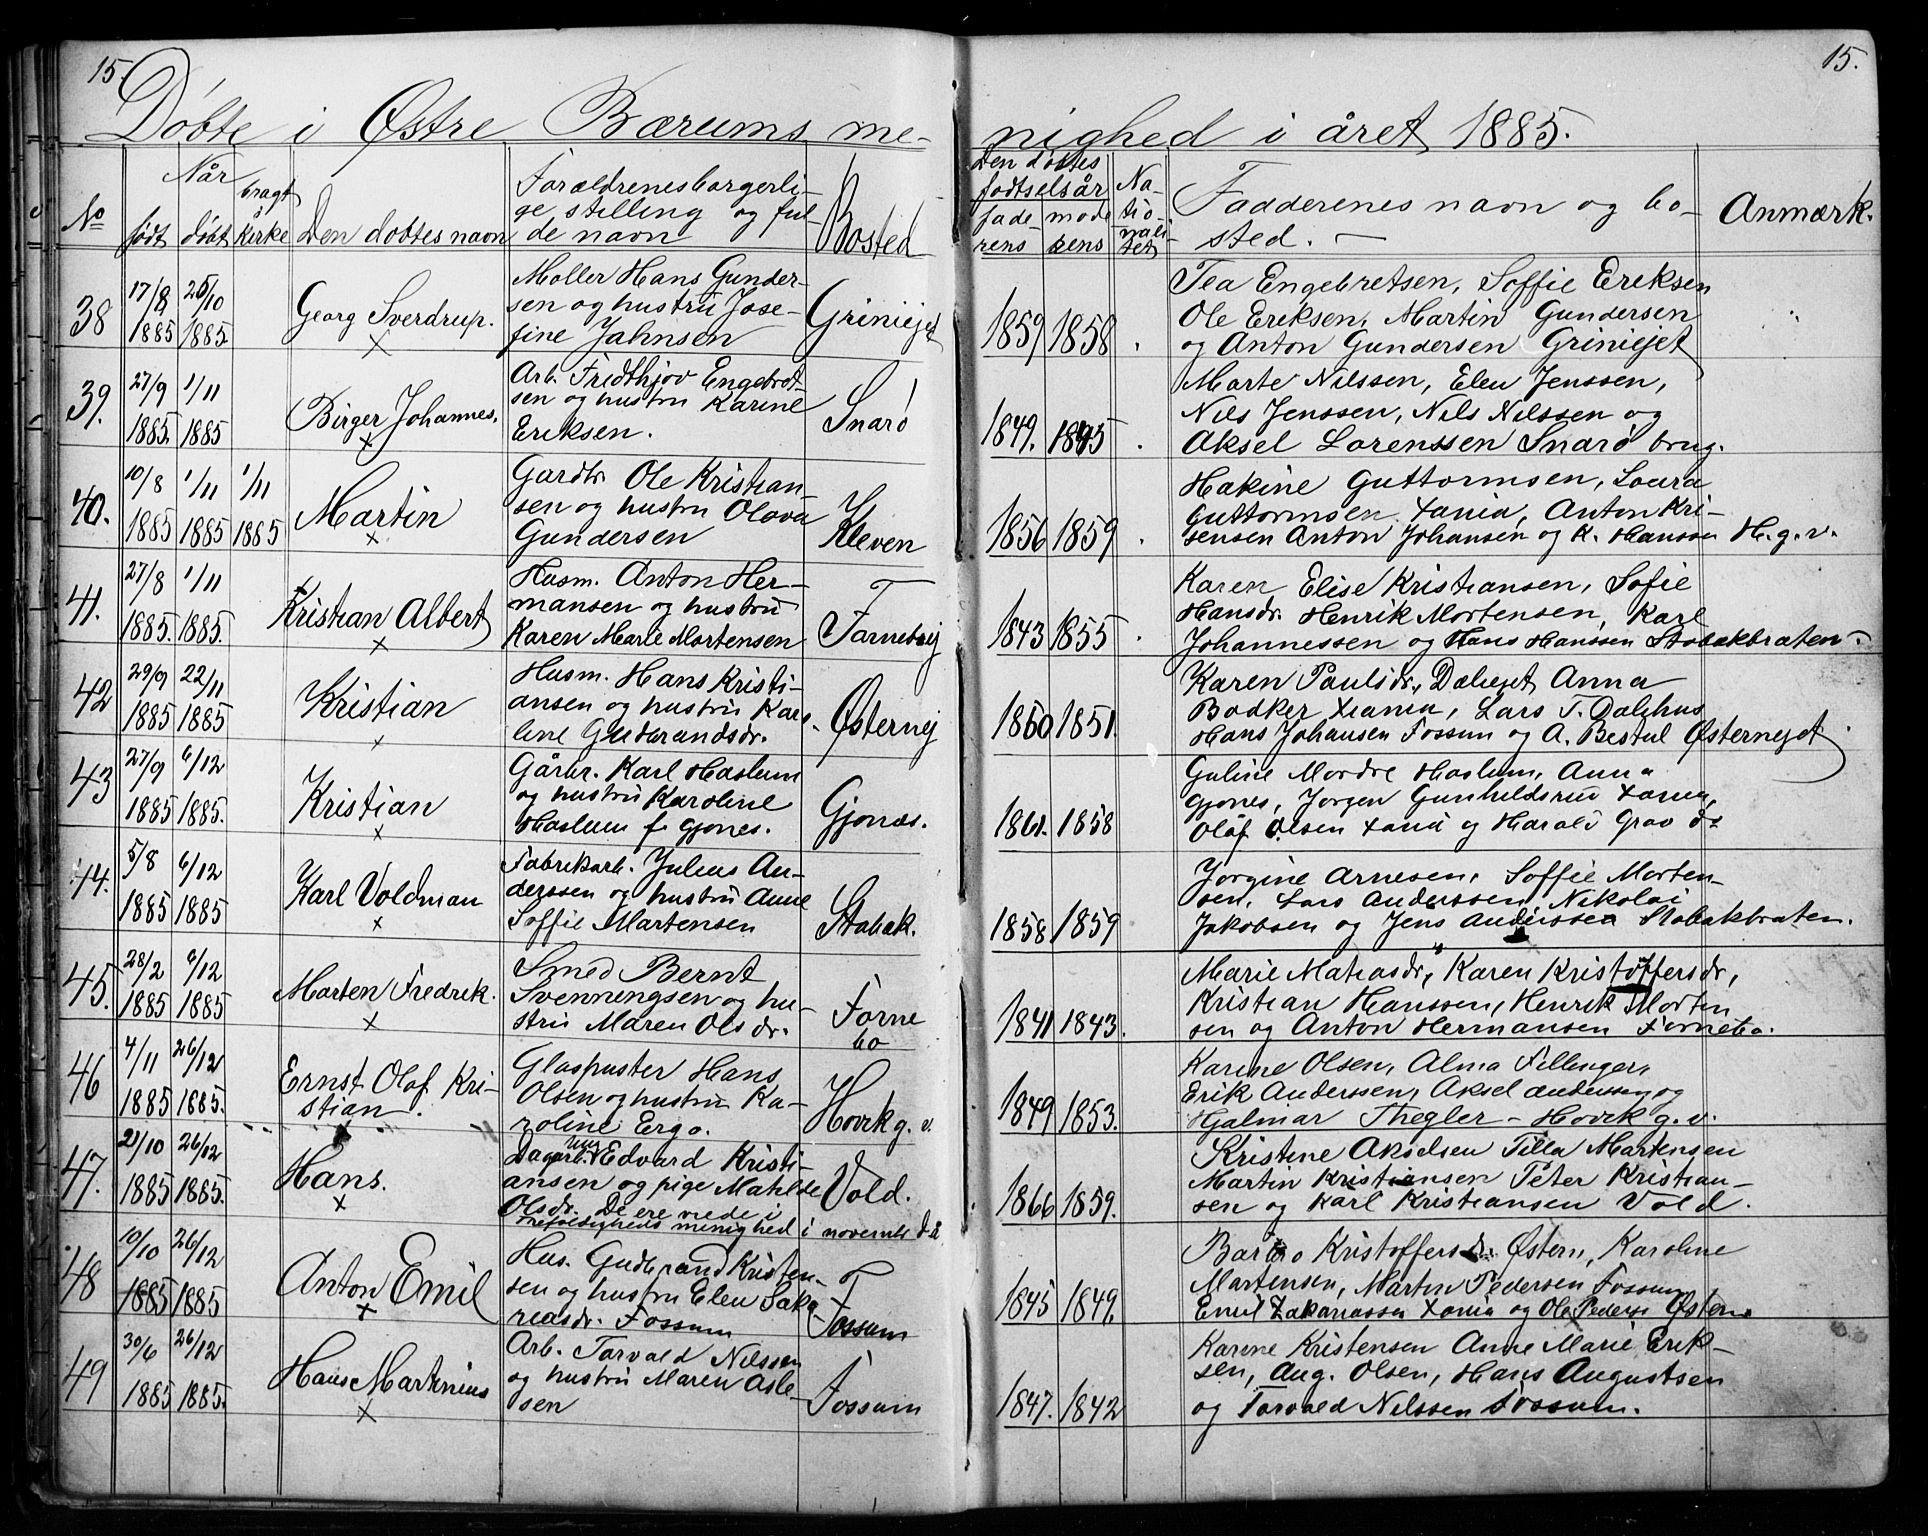 15.
15.
Døbte i Østre Bærums me-
nighed i året 1885.
No
Når
født
døbt
bragt
i
kirke
Den døbtes navn
Forældrenes borgerli-
ge stilling og ful-
de navn
Bosted
Den døbtes
fødselsår
fade-
rens
mode
rens
Na-
tio-
nali-
tet
Fadderenes navn og bo-
sted. —
Anmærk.
38
17/8
1885
26/10
1885.
Georg Sverdrup.
×
Møller Hans Gunder-
sen og hustru Jose-
fine Jahnsen
Griniejet
1859
1858
Tea Engebretsen, Soffie Eriksen
Ole Eriksen, Martin Gundersen
og Anton Gundersen Griniejet
39.
27/9
1885.
1/11
1885
Birger Johannes.
×
Arb. Fridthjov Engebret-
sen og hustru Karine
Eriksen.
Snarø
1849.
1845
Marte Nilssen, Elen Jenssen,
Nils Jenssen, Nils Nilssen og
Aksel Lorenssen Snarø brug.
40.
10/8
1885
1/11
1885
1/11
1885
Martin
×
Gardbr. Ole Kristian-
sen og hustru Olava
Gundersen
Kleven
1856
1859
Hakine Guttormsen, Laura
Guttormsen Xania, Anton Kri-
sensen Anton Johansen og K. Hanssen H. g. v.
41.
27/8
1885.
1/11
1885.
Kristian Albert
×
Husm. Anton Her-
mansen og hustru
Karen Marie Mortensen
Fornebuej
1843
1855
Karen Elise Kristiansen, Sofie
Hansdr. Henrik Mortensen, Karl
Johannessen og Hans Hanssen Stabækbråten.
42
29/9
1885
22/11
1885
Kristian
×
Husm. Hans Kristi-
ansen og hustru Karo-
line Gudbrandsdr.
Østernej
1860
1851.
Karen Paulsdr., Dælejet Anna
Bødker Xania, Lars T. Dælihus
Hans Johansen Fossum og A. Bestul Østernejet
43
27/9
1885
6/12
1885.
Kristian
×
Gårbr. Karl Haslum
og hustru Karoline
Haslum f. Gjønes.
Gjønæs.
1861.
1858
Guline Mordre Haslum, Anna
Gjønes, Jørgen Gunhildsrud Xania,
Olaf Olsen Xania og Harald Grav ds
44.
5/8
1885
6/12
1885
Karl Voldman
×
Fabrikarb. Julius An-
derssen og hustru Anne
Soffie Martensen
Stabæk.
1858
1859
Jørgine Arnesen, Soffie Morten-
sen, Lars Anderssen, Nikolai
Jakobsen og Jens Anderssen Stabækbråten.
45.
28/2
1885
6/12
1885
Morten Fredrik.
×
Smed Bernt
Svenningsen og hu-
stru Maren Olsdr.
Forne
bo
1841
1843.
Marie Matiasdr, Karen Kristoffersdr,
Kristian Hanssen, Henrik Morten
sen og Anton Hermansen Fornebo.
46
4/11
1885
26/12
1885.
Ernst Olaf Kri-
stian.
×
Glaspuster Hans
Olsen og hustru Ka-
roline Ergo.
Høvik g. v.
1849
1853.
Karine Olsen, Alma Fillinger,
Erik Anderssen, Aksel Anderssen og
Hjalmar Thegler - Høvik g. v.
47.
21/10
1885
26/12
1885.
Hans.
×
Dagarb. ung Edvard Kristi-
ansen og pige Matilde
Olsdr. De ere viede i
trefoldigheds menighed i november d. å.
Vold.
1866
1859.
Kristine Akselsen Tilla Martensen
Martin Kristiansen Peter Kristian-
sen og Karl Kristiansen Vold.
48
10/10
1885
26/12
1885
Anton Emil
×
Hus. Gudbrand Kristen-
sen og hustru Elen Saka-
riasdr. Fossum
Fossum
1845
1849.
Barbro Kristoffersdr. Østern, Karoline
Martensen, Martin Pedersen Fossum
Emil Zakariassen Xania og Ole Peders. Østern
49
30/6
1885
26/12
1885.
Hans Martinius
×
Arb. Torvald Nilssen
og hustru Maren Asle-
sen
Fossum
1847.
1842
Karine Kristensen Anne Marie Erik-
sen, Aug. Olsen, Hans Augustsen
og Torvald Nilssen Fossum.